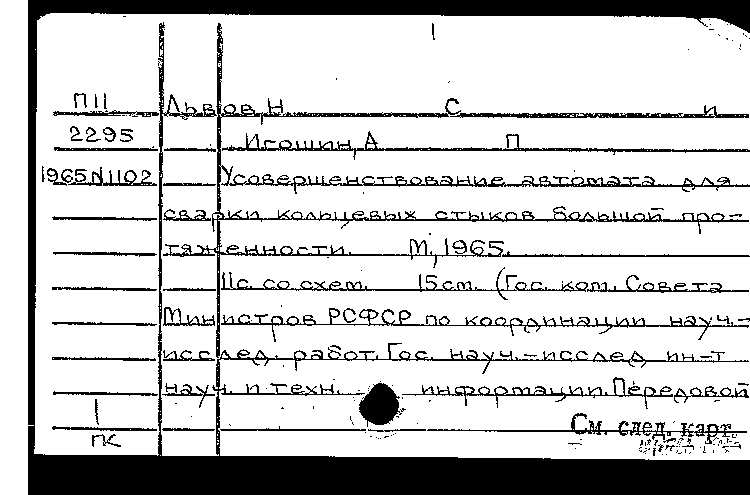 П11 Львов, Н С и
2295 Игошин, А П
1965N1102 Усовершенствование автомата для
сварки кольцевых стыков большой про-
тяженности. М., 1965.
11с. со схем. 15см. (Гос. ком. Совета
Министров РСФСР по координации науч.-
исслед. работ. Гос. науч.-исслед ин-т
науч. и техн. информации. Передовой
1
См. след. карт.
ПК